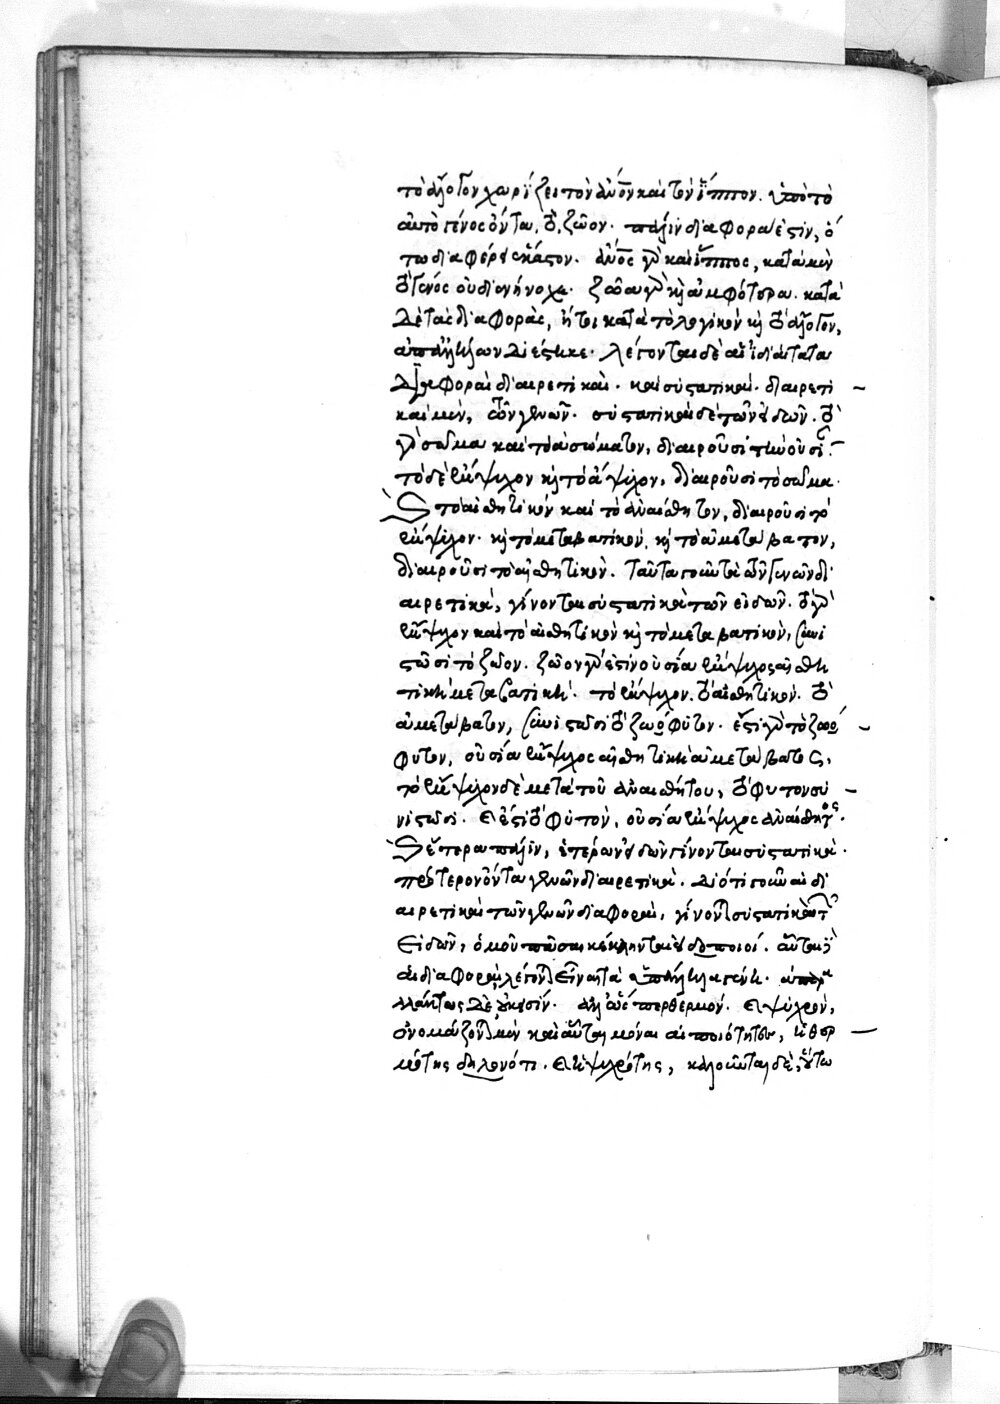 τὸ ἄλογον χωρίζει τὸν ἄνον καὶ τὸν ἵππον. ὑπὸ τὸ
αὐτὸ γένος ὄντα, τὸ ζῶον. πάλιν διαφορά ἐστιν, ὁ
τω διαφέρει ἕκαστον. ἄνος γὰρ καὶ ἵππος, κατὰ μὲν
τὸ γένος οὐ διενήνοχε. ζῶα γὰρ κὴ ἀμφότερα. κατὰ
δὲ τὰς διαφορὰς, ἤτοι κατὰ τὸ λογικὸν κὴ τὸ ἄλογον,
ἀπ' ἀλλήλων διέστηκε. λέγονται δὲ αἱ ἰδιαίταται
διαφοραὶ διαιρετικαὶ. καὶ συστατικαί. διαιρετι
καὶ μὲν, τῶν γενῶν. συστατικαὶ δὲ τῶν εἰδῶν. τὸ
γὰρ σῶμα καὶ τὸ ἀσώματον, διαιροῦσι τὴν οὐσίαν.
τὸ δὲ ἔμψυχον κὴ τὸ ἄψυχον, διαιροῦσι τὸ σῶμα.
τὸ αἰσθητικόν καὶ τὸ ἀναίσθητον, διαιροῦσι τὸ
ἔμψυχον. κὴ τὸ μεταβατικὸν, κὴ τὸ ἀμετάβατον,
διαιροῦσι τὸ αἰσθητικὸν. ταῦτα γοῦν τὰ τῶν γενῶν δι
αιρετικὰ, γίνονται συστατικὰ τῶν εἰδῶν. τὸ γὰρ
ἔμψυχον καὶ τὸ αἰσθητικὸν κὴ τὸ μεταβατικὸν, συνι
στῶσι τὸ ζῶον. ζῶον γάρ ἐστιν οὐσία ἔμψυχος αἰσθη
τικὴ μεταβατικὴ. τὸ ἔμψυχον. τὸ αἰσθητικὸν. τὸ
ἀμετάβατον, συνιστῶσι τὸ ζωόφυτον. ἔστι γὰρ τὸ ζωό
φυτον, οὐσία ἔμψυχος αἰσθητικὴ ἀμετάβατος,
τὸ ἔμψυχον δὲ μετὰ τοῦ ἀναισθήτου, τὸ φυτὸν συ
νιστῶσι. ἐστὶ τὸ φυτὸν, οὐσία ἔμψυχος ἀναίσθητος.
ἕτερα πάλιν, ἑτέρων εἰδῶν γίνονται συστατικὰ.
πρότερον ὄντα γενῶν διαιρετικά. διότι γοῦν αἱ δι
αιρετικαὶ τῶν γενῶν διαφοραὶ, γίνονται συστατικαὶ τῶν
εἰδῶν, ὁμοῦ πᾶσαι κέκληνται εἰδοποιοί. αὗται
αἱ διαφοραὶ λέγονται εἶναι τὰ ὑπάλληλα γένη. ἀπαρα
λλάκτως δὲ οὔκουσίν. ἀλλ' ὥσπερ θερμόν. ψύχρον,
ὀνομάζονται μὲν καὶ αὗται μόναι αἱ ποιότητες, ἡ θερ
μότης δηλονότι. ἡ ψυχρότης, καλοῦνται δὲ, οὕτω